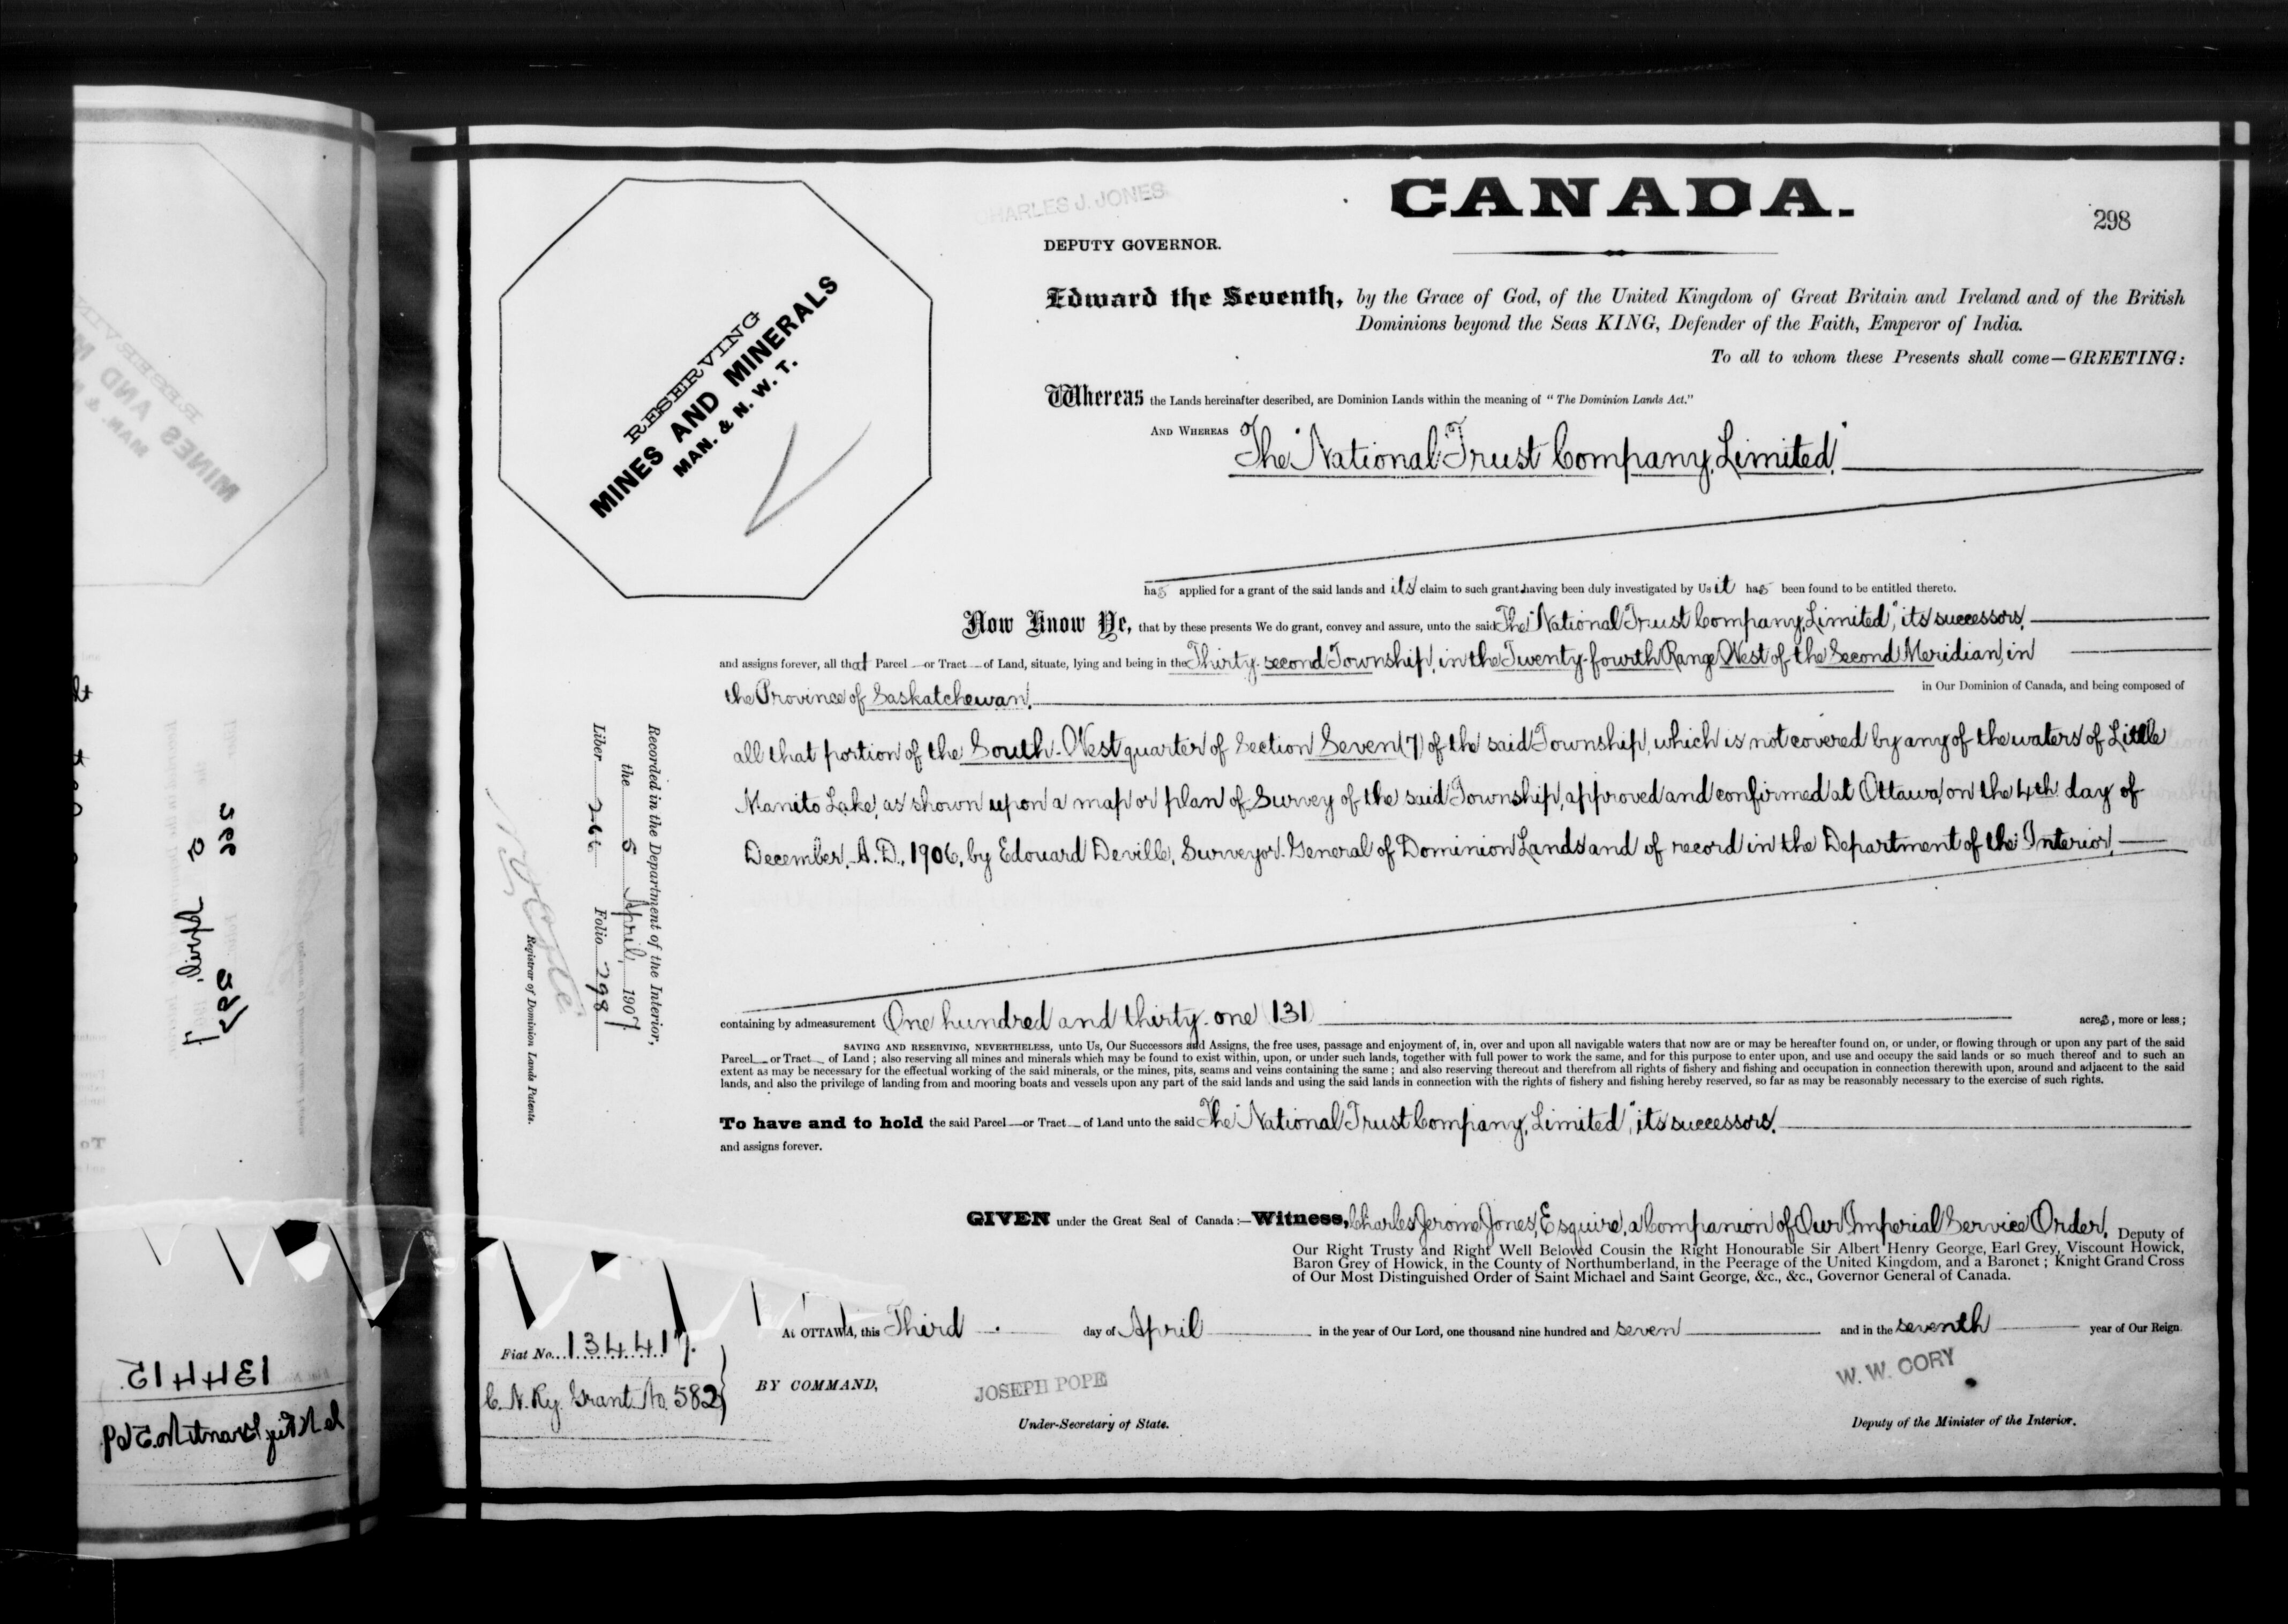 CHARLES J. JONES
CANADA.
298
DEPUTY GOVERNOR.
RESERVING
MINES AND MINERALS
MAN. & N. W. T.
Edward the Seventh, by the Grace of God, of the United Kingdom of Great Britain and Ireland and of the British
Dominions beyond the Seas KING, Defender of the Faith, Emperor of India.
To all to whom these Presents shall come—GREETING:
Whereas the Lands hereinafter described, are Dominion Lands within the meaning of "The Dominion Lands Act."
AND WHEREAS
The "National Trust Company, Limited,"
has applied for a grant of the said lands and its claim to such grant having been duly investigated by Us it has been found to be entitled thereto.
Now Know Ye, that by these presents We do grant, convey and assure, unto the said The "National Trust Company, Limited," its successors,
and assigns forever, all that Parcel or Tract of Land, situate, lying and being in the Thirty-second Township, in the Twenty-fourth Range, West of the Second Meridian, in
the Province of Saskatchewan, in Our Dominion of Canada, and being composed of
all that portion of the South-West quarter of Section Seven (7) of the said Township, which is not covered by any of the waters of Little
Manito Lake, as shown upon a map or plan of Survey of the said Township, approved and confirmed at Ottawa, on the 4th day of
December, A.D., 1906, by Edouard Deville, Surveyor-General of Dominion Lands and of record in the Department of the Interior,
containing by admeasurement One hundred and thirty-one (131) acres, more or less;
SAVING AND RESERVING, NEVERTHELESS, unto Us, Our Successors and Assigns, the free uses, passage and enjoyment of, in, over and upon all navigable waters that now are or may be hereafter found on, or under, or flowing through or upon any part of the said
Parcel or Tract of Land; also reserving all mines and minerals which may be found to exist within, upon, or under such lands, together with full power to work the same, and for this purpose to enter upon, and use and occupy the said lands or so much thereof and to such an
extent as may be necessary for the effectual working of the said minerals, or the mines, pits, seams and veins containing the same; and also reserving thereout and therefrom all rights of fishery and fishing and occupation in connection therewith upon, around and adjacent to the said
lands, and also the privilege of landing from and mooring boats and vessels upon any part of the said lands and using the said lands in connection with the rights of fishery and fishing hereby reserved, so far as may be reasonably necessary to the exercise of such rights.
To have and to hold the said Parcel or Tract of Land unto the said The "National Trust Company, Limited," its successors,
and assigns forever.
GIVEN under the Great Seal of Canada:—Witness, Charles Jerome Jones, Esquire, a Companion of Our Imperial Service Order, Deputy of
Our Right Trusty and Right Well Beloved Cousin the Right Honourable Sir Albert Henry George, Earl Grey, Viscount Howick,
Baron Grey of Howick, in the County of Northumberland, in the Peerage of the United Kingdom, and a Baronet; Knight Grand Cross
of Our Most Distinguished Order of Saint Michael and Saint George, &c., &c., Governor General of Canada.
At OTTAWA, this Third day of April in the year of Our Lord, one thousand nine hundred and seven and in the seventh year of Our Reign.
BY COMMAND,
JOSEPH POPE
Under-Secretary of State.
W. W. CORY
Deputy of the Minister of the Interior.
Fiat No. 134417.
C. N. Ry. Grant No. 582
Recorded in the Department of the Interior,
the 5 April, 1907
Liber 266 Folio 298
Registrar of Dominion Lands Patents.